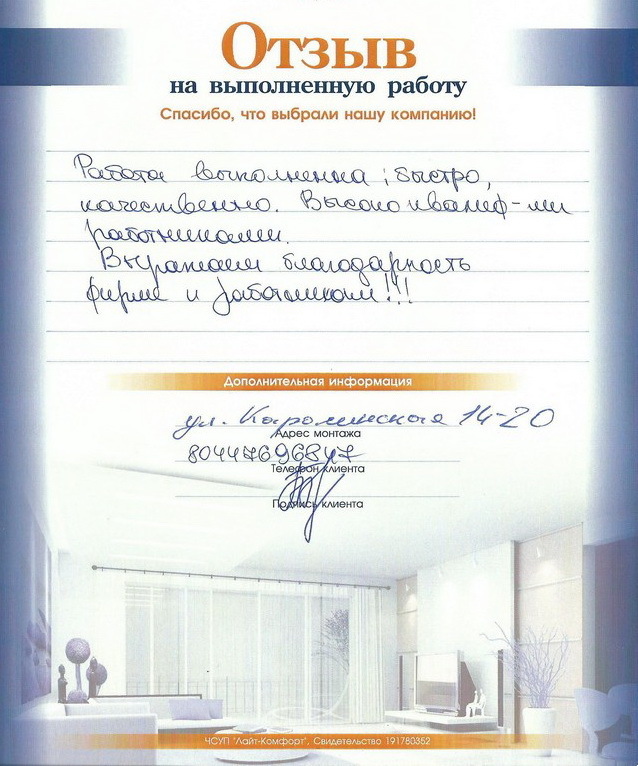 Отзыв
на выполненную работу
Спасибо, что выбрали нашу компанию!
Работа выполненна быстро,
качественно. Высококвалиф-ми
работниками.
Выражаем благодарность
фирме и работникам!!!
Дополнительная информация
ул. Каролинская 14-20
Адрес монтажа
80447696847
Телефон клиента
Подпись клиента
ЧСУП "Лайт-Комфорт", Свидетельство 191780352